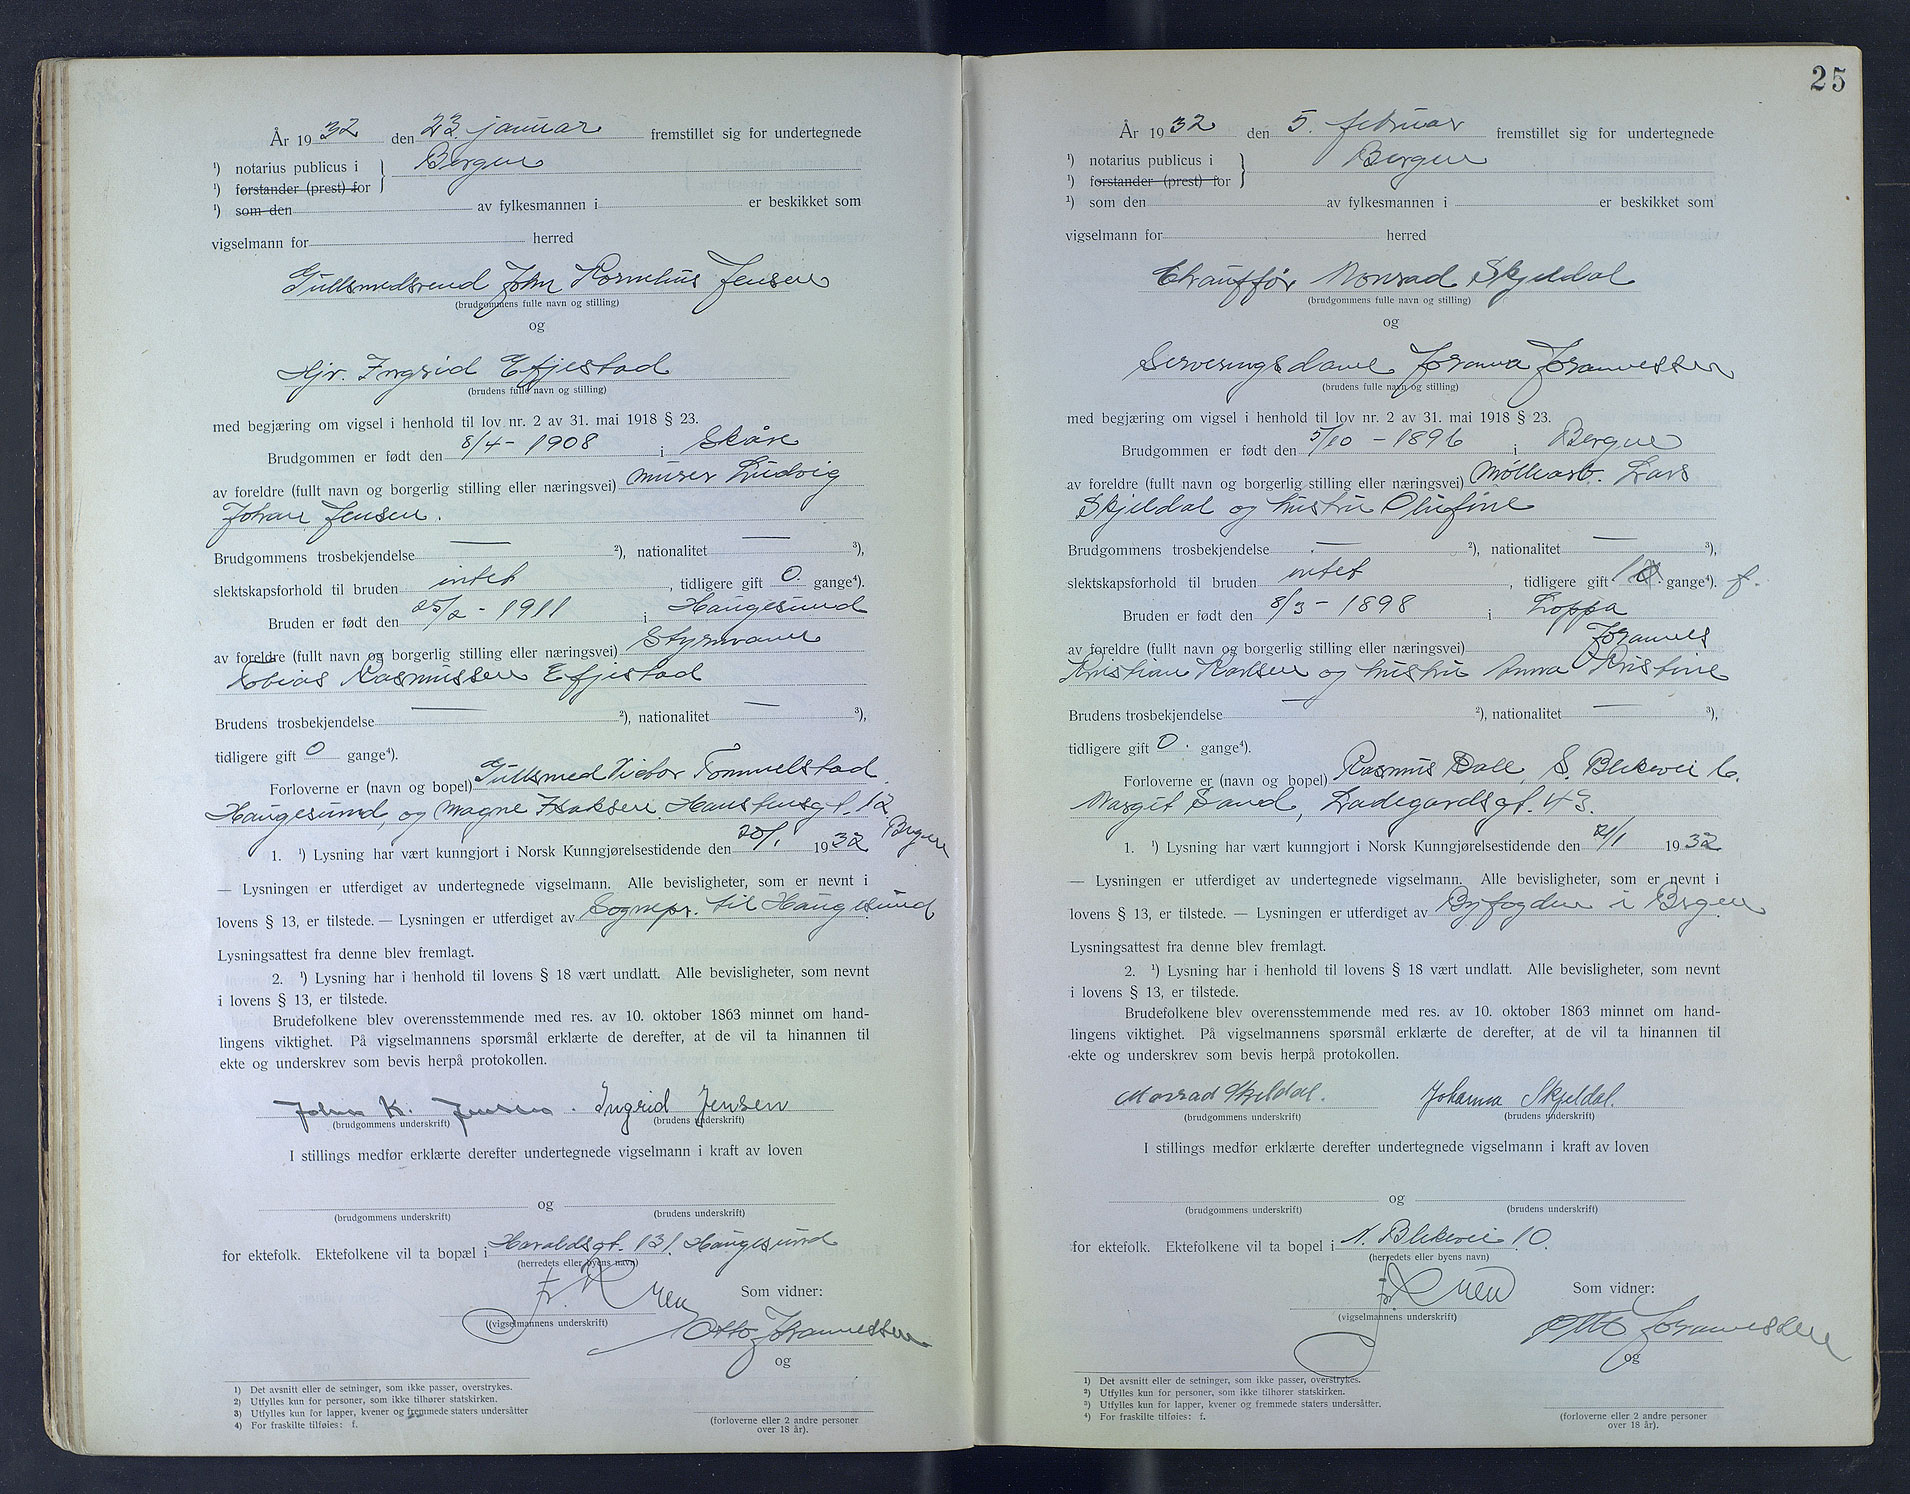 År 1932 den 23. januar fremstillet sig for undertegnede
¹) notarius publicus i } Bergen
¹) forstander (prest) for
¹) som den av fylkesmannen i er beskikket som
vigselmann for herred
Gullsmedsvend John Kornelius Jensen
(brudgommens fulle navn og stilling)
og
Hjv. Ingrid Efjestad
(brudens fulle navn og stilling)
med begjæring om vigsel i henhold til lov nr. 2 av 31. mai 1918 § 23.
Brudgommen er født den 8/4 - 1908 i Skåre
av foreldre (fullt navn og borgerlig stilling eller næringsvei) murer Ludvig
Johan Jensen.
Brudgommens trosbekjendelse — ²), nationalitet — ³),
slektskapsforhold til bruden intet, tidligere gift 0. gange⁴).
Bruden er født den 25/2 - 1911 i Haugesund
av foreldre (fullt navn og borgerlig stilling eller næringsvei) Styrmann
Tobias Rasmussen Efjestad
Brudens trosbekjendelse — ²), nationalitet — ³),
tidligere gift 0 gange⁴).
Forloverne er (navn og bopel) Gullsmed Victor Tommelstad
Haugesund, og Magne Isaksen, Haustensgt. 12 Bergen
1. ¹) Lysning har vært kunngjort i Norsk Kunngjørelsestidende den 20/1 1932
— Lysningen er utferdiget av undertegnede vigselmann. Alle bevisligheter, som er nevnt i
lovens § 13, er tilstede. — Lysningen er utferdiget av Sognepr. til Haugesund
Lysningsattest fra denne blev fremlagt.
2. ¹) Lysning har i henhold til lovens § 18 vært undlatt. Alle bevisligheter, som nevnt
i lovens § 13, er tilstede.
Brudefolkene blev overensstemmende med res. av 10. oktober 1863 minnet om hand-
lingens viktighet. På vigselmannens spørsmål erklærte de derefter, at de vil ta hinannen til
ekte og underskrev som bevis herpå protokollen.
John K. Jensen. Ingrid Jensen
(brudgommens underskrift) (brudens underskrift)
I stillings medfør erklærte derefter undertegnede vigselmann i kraft av loven
og
(brudgommens underskrift) (brudens underskrift)
for ektefolk. Ektefolkene vil ta bopæl i Haraldsgt. 131. Haugesund
(herredets eller byens navn)
Som vidner:
(vigselmannens underskrift) Otto Johannessen
og
1) Det avsnitt eller de setninger, som ikke passer, overstrykes.
2) Utfylles kun for personer, som ikke tilhører statskirken.
3) Utfylles kun for lapper, kvener og fremmede staters undersåtter
4) For fraskilte tilføies: f.
(forloverne eller 2 andre personer
over 18 år).
25
År 1932 den 5. februar fremstillet sig for undertegnede
¹) notarius publicus i } Bergen
¹) forstander (prest) for
¹) som den av fylkesmannen i er beskikket som
vigselmann for herred
Chauffør Monrad Skjeldal
(brudgommens fulle navn og stilling)
og
Serveringsdame Johanna Johannessen
(brudens fulle navn og stilling)
med begjæring om vigsel i henhold til lov nr. 2 av 31. mai 1918 § 23.
Brudgommen er født den 5/10 - 1896 i Bergen
av foreldre (fullt navn og borgerlig stilling eller næringsvei) Møllearb. Lars
Skjeldal og hustru Olufine
Brudgommens trosbekjendelse — ²), nationalitet — ³),
slektskapsforhold til bruden intet, tidligere gift 1 0. gange⁴). f.
Bruden er født den 8/3 - 1898 i Loppa
av foreldre (fullt navn og borgerlig stilling eller næringsvei) Johannes
Kristian Karlsen og hustru Anna Kristine
Brudens trosbekjendelse — ²), nationalitet — ³),
tidligere gift 0. gange⁴).
Forloverne er (navn og bopel) Rasmus Dale, S. Blekevei 6.
Margit Sand, Ladegårdsgt. 43.
1. ¹) Lysning har vært kunngjort i Norsk Kunngjørelsestidende den 21/1 1932
— Lysningen er utferdiget av undertegnede vigselmann. Alle bevisligheter, som er nevnt i
lovens § 13, er tilstede. — Lysningen er utferdiget av Byfogden i Bergen
Lysningsattest fra denne blev fremlagt.
2. ¹) Lysning har i henhold til lovens § 18 vært undlatt. Alle bevisligheter, som nevnt
i lovens § 13, er tilstede.
Brudefolkene blev overensstemmende med res. av 10. oktober 1863 minnet om hand-
lingens viktighet. På vigselmannens spørsmål erklærte de derefter, at de vil ta hinannen til
ekte og underskrev som bevis herpå protokollen.
Monrad Skjeldal. Johanna Skjeldal.
(brudgommens underskrift) (brudens underskrift)
I stillings medfør erklærte derefter undertegnede vigselmann i kraft av loven
og
(brudgommens underskrift) (brudens underskrift)
for ektefolk. Ektefolkene vil ta bopel i N. Blekevei 10.
(herredets eller byens navn)
Som vidner:
(vigselmannens underskrift) Otto Johannessen
og
¹) Det avsnitt eller de setninger, som ikke passer, overstrykes.
²) Utfylles kun for personer, som ikke tilhører statskirken.
³) Utfylles kun for lapper, kvener og fremmede staters undersåtter.
⁴) For fraskilte tilføies: f.
(forloverne eller 2 andre personer
over 18 år).